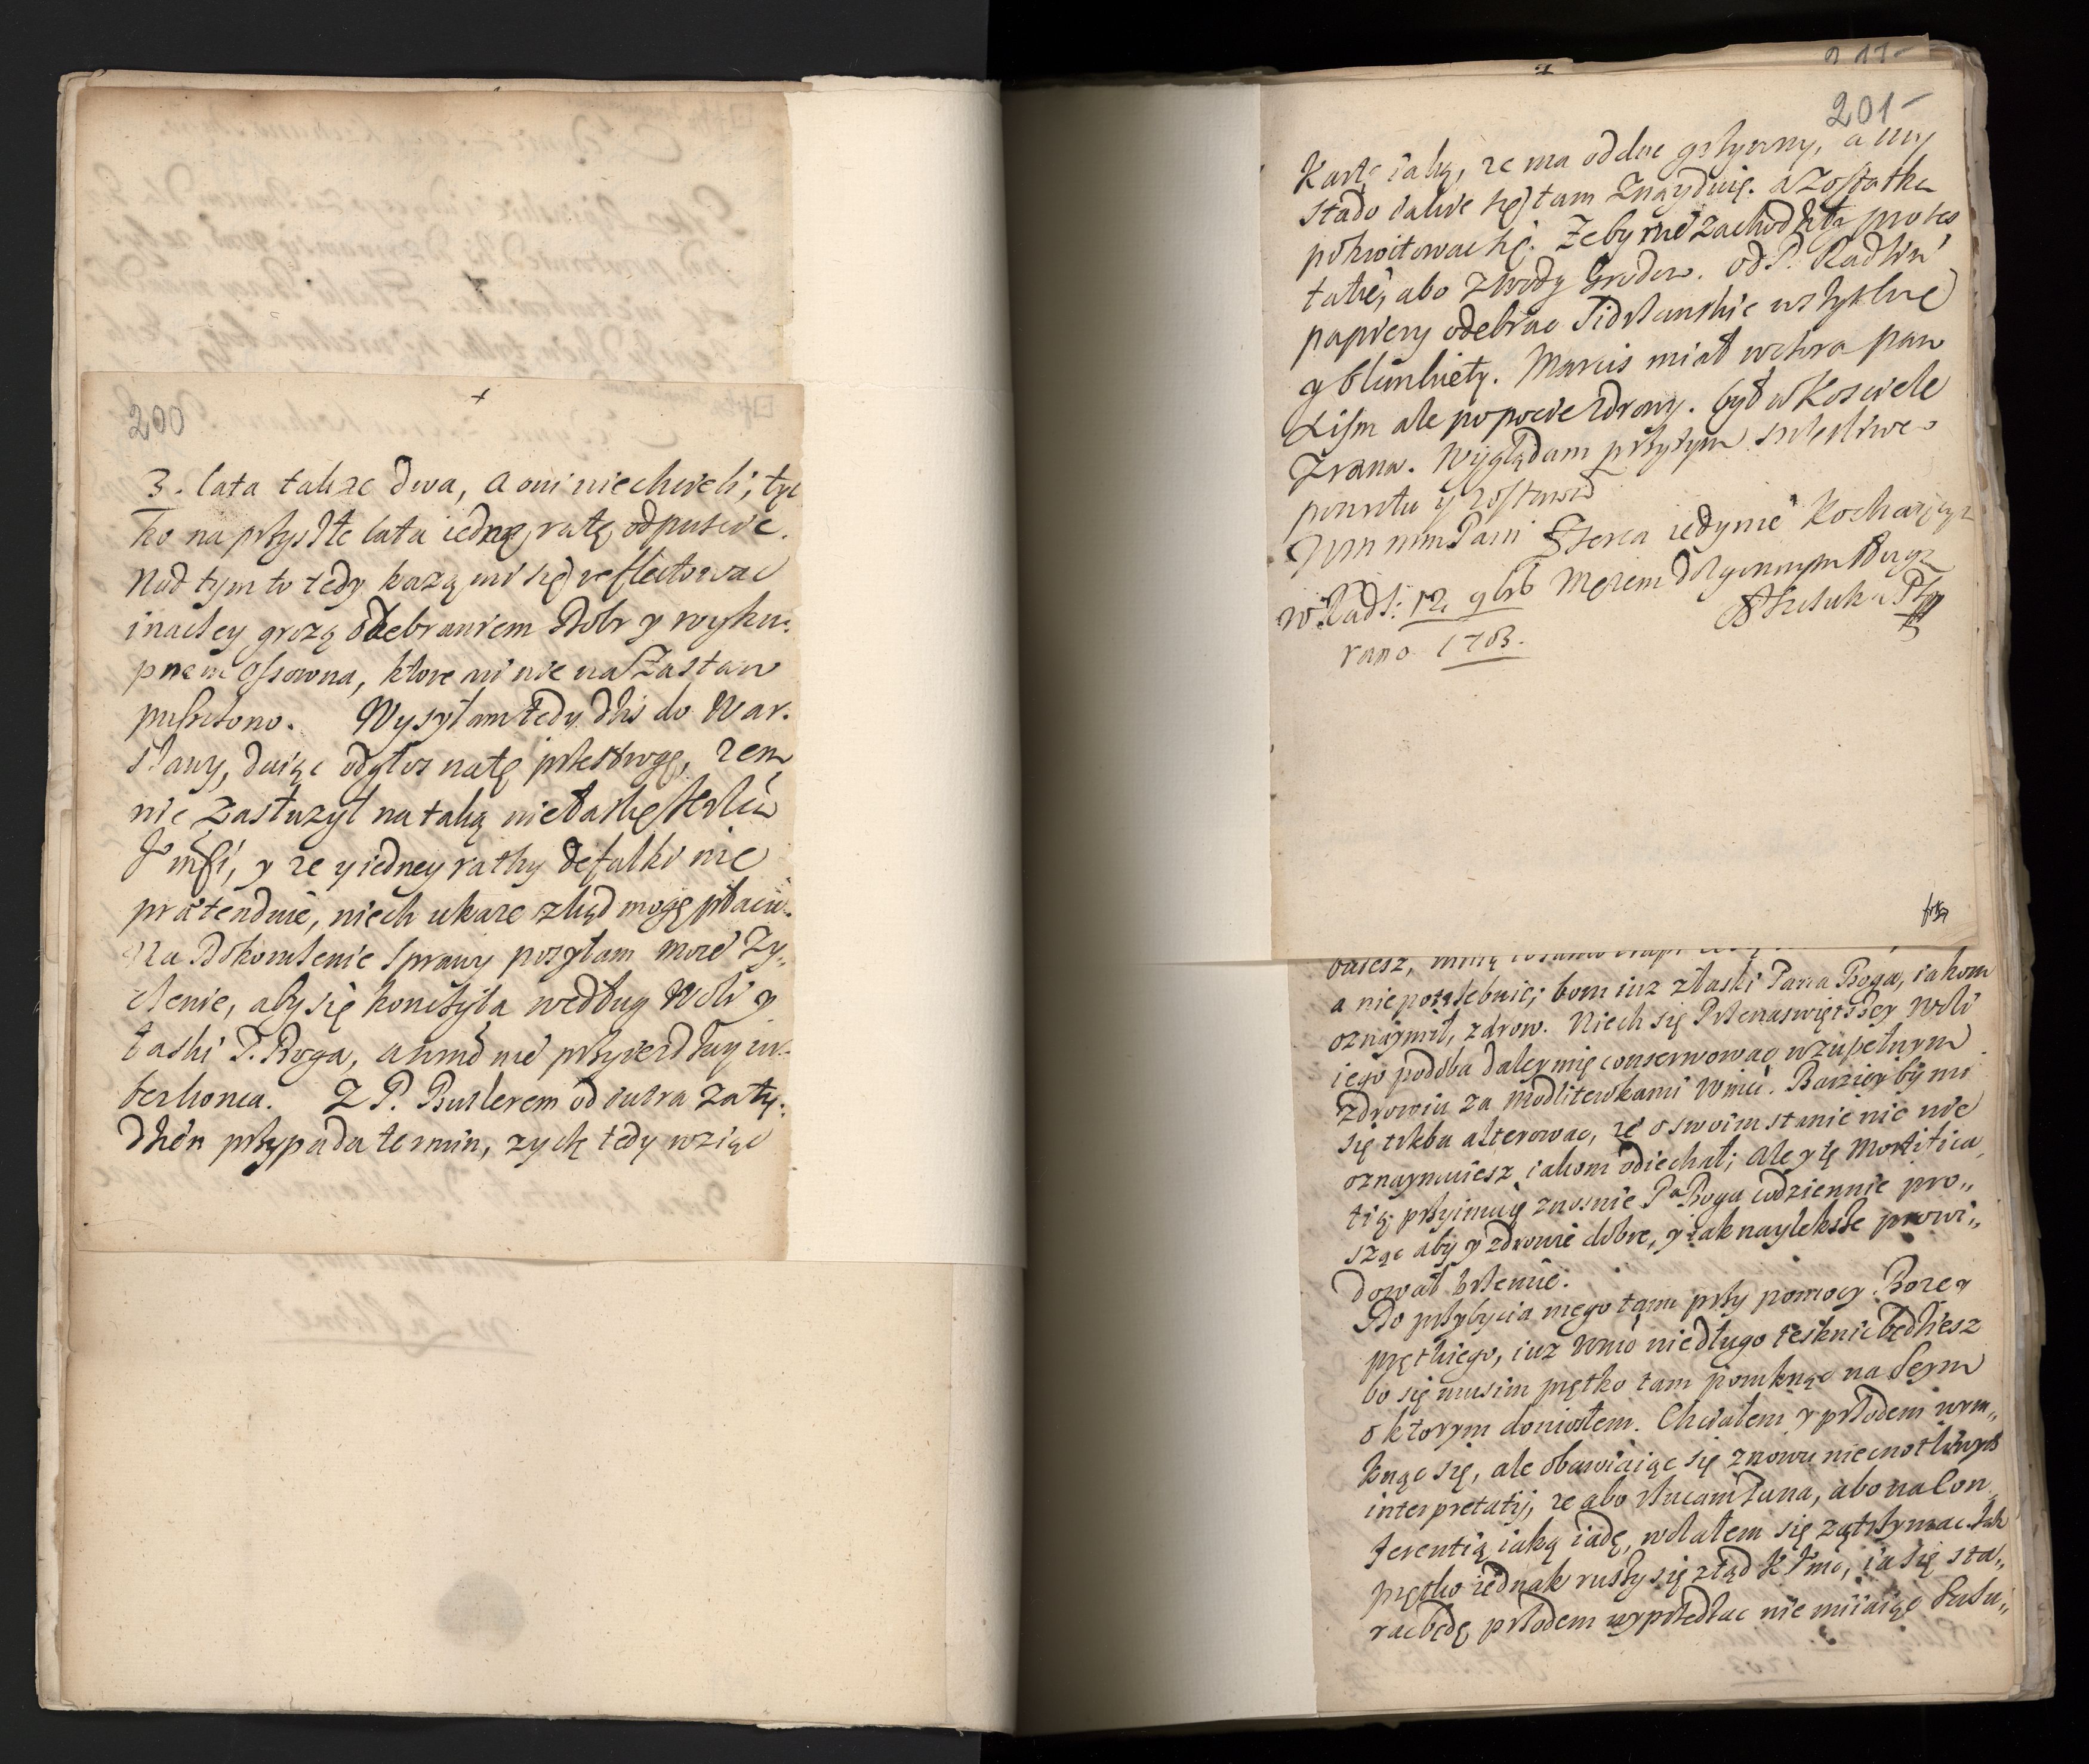 200
+
3. lata takze dwa, a oni niechcieli, tyl
ko na przyszłe lata iednę ratę odpuscic.
Nad tym to tedy kazą mi się reflectowac
inaczey grozą odebraniem Dobr y wyku:
pnem Ossowna, ktore mi nie na Zastaw
puszczono. Wysyłam tedy dzis do War.
szawy, daiąc odgłos na tę przestrogę, zem
nie zasłuzył na taką niełaskę
y ze y iedney ratky defalki nie
prætenduię, niech ukaze zkąd mogę płacic.
Na Dokonczenie sprawy posyłam moie Zy,
czenie, aby się konczyła według Woli y
łaski P. Boga, a nie przyieżdzay
bez konca. Z P. Butlerem od iutra za ty:
dzien przypada termin, zycę tedy wziąc
217
201
Kartę iaką, ze ma oddac grzywny, a my
stado całue się tam Znayduię. a Zostatku
pokwitowac się. Zeby nie zachodziła protes
tatie, abo zwody Grodow. od P. Radzin
papiery odebrac Sidzianskie wszytkie
y blankiety. Marcis miał wczora parox
izm ale po pocie zdrowy. był w Kosciele
Zrana. Wyglądam przytym szczęsliwe
powrotu y zostawic
Pani Serca iedynie Kochaiącym
w Radz: 12. 9br Męzem dozgonnym Sługą
rano 1703. SSzczuka
a niepotrzebnie; bom iuz z łaski Pana Boga, iakom
oznaymił, zdrow. Niech się Przenaswiętszey Woli
iego podoba daley mię conserwowac w zupełnym
zdrowiu za modlitewkami Wmci. Barziey by mi
się trzeba alterowac, ze o swoim stanie nic nie
oznaymuiesz iakom odiechał; ale y tę Mortifica,
tią przyimuię znosnie Pa Boga codziennie pro,,
sząc aby y zdrowie dobre, y iak nayleksze prowi,,
dował brzemie.
Do przybycia mego tam przy pomocy Bozey
prętkiego, iuz Wmc niedługo tesknic będziesz
bo się musim prętko tam pomknąc na Seym
o ktorym doniosłem. Chciałem y przodem wym,,
knąc się, ale obawiaiąc się znowu niecnotliwych
interpretatij, ze abo rzucam Pana, abo na Con
ferentią iaką iadę, wolałem się zatrzymac. Jak
prętko iednak ruszy się ztąd K Jmc, ia się sta,,
rac będę przodem wyprzedzac nie miiaiąc